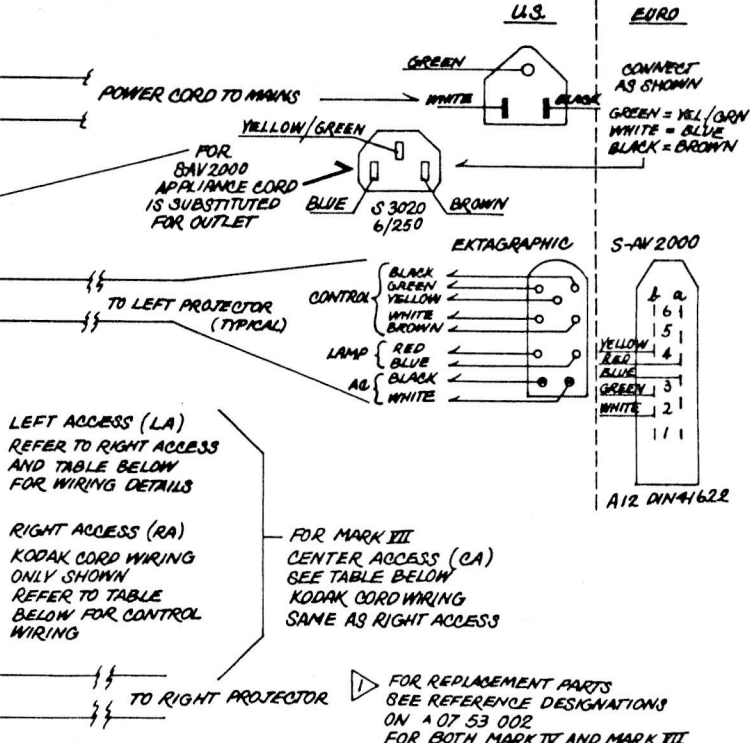 U.S.
EURO
GREEN
CONNECT
AS SHOWN
POWER CORD TO MAINS
WHITE
BLACK
GREEN = YEL/GRN
WHITE = BLUE
BLACK = BROWN
YELLOW/GREEN
FOR
SAV2000
APPLIANCE CORD
IS SUBSTITUTED
FOR OUTLET
BLUE
S 3020
6/250
BROWN
EKTAGRAPHIC
S-AV 2000
CONTROL
BLACK
GREEN
YELLOW
WHITE
BROWN
TO LEFT PROJECTOR
(TYPICAL)
LAMP
RED
BLUE
AC
BLACK
WHITE
b a
6
5
YELLOW
4
RED
BLUE
GREEN
3
WHITE
2
1
A12 DIN41622
LEFT ACCESS (LA)
REFER TO RIGHT ACCESS
AND TABLE BELOW
FOR WIRING DETAILS
RIGHT ACCESS (RA)
KODAK CORD WIRING
ONLY SHOWN
REFER TO TABLE
BELOW FOR CONTROL
WIRING
FOR MARK VII
CENTER ACCESS (CA)
SEE TABLE BELOW
KODAK CORD WIRING
SAME AS RIGHT ACCESS
TO RIGHT PROJECTOR
1
FOR REPLACEMENT PARTS
SEE REFERENCE DESIGNATIONS
ON A 07 53 002
FOR BOTH MARK IV AND MARK VII